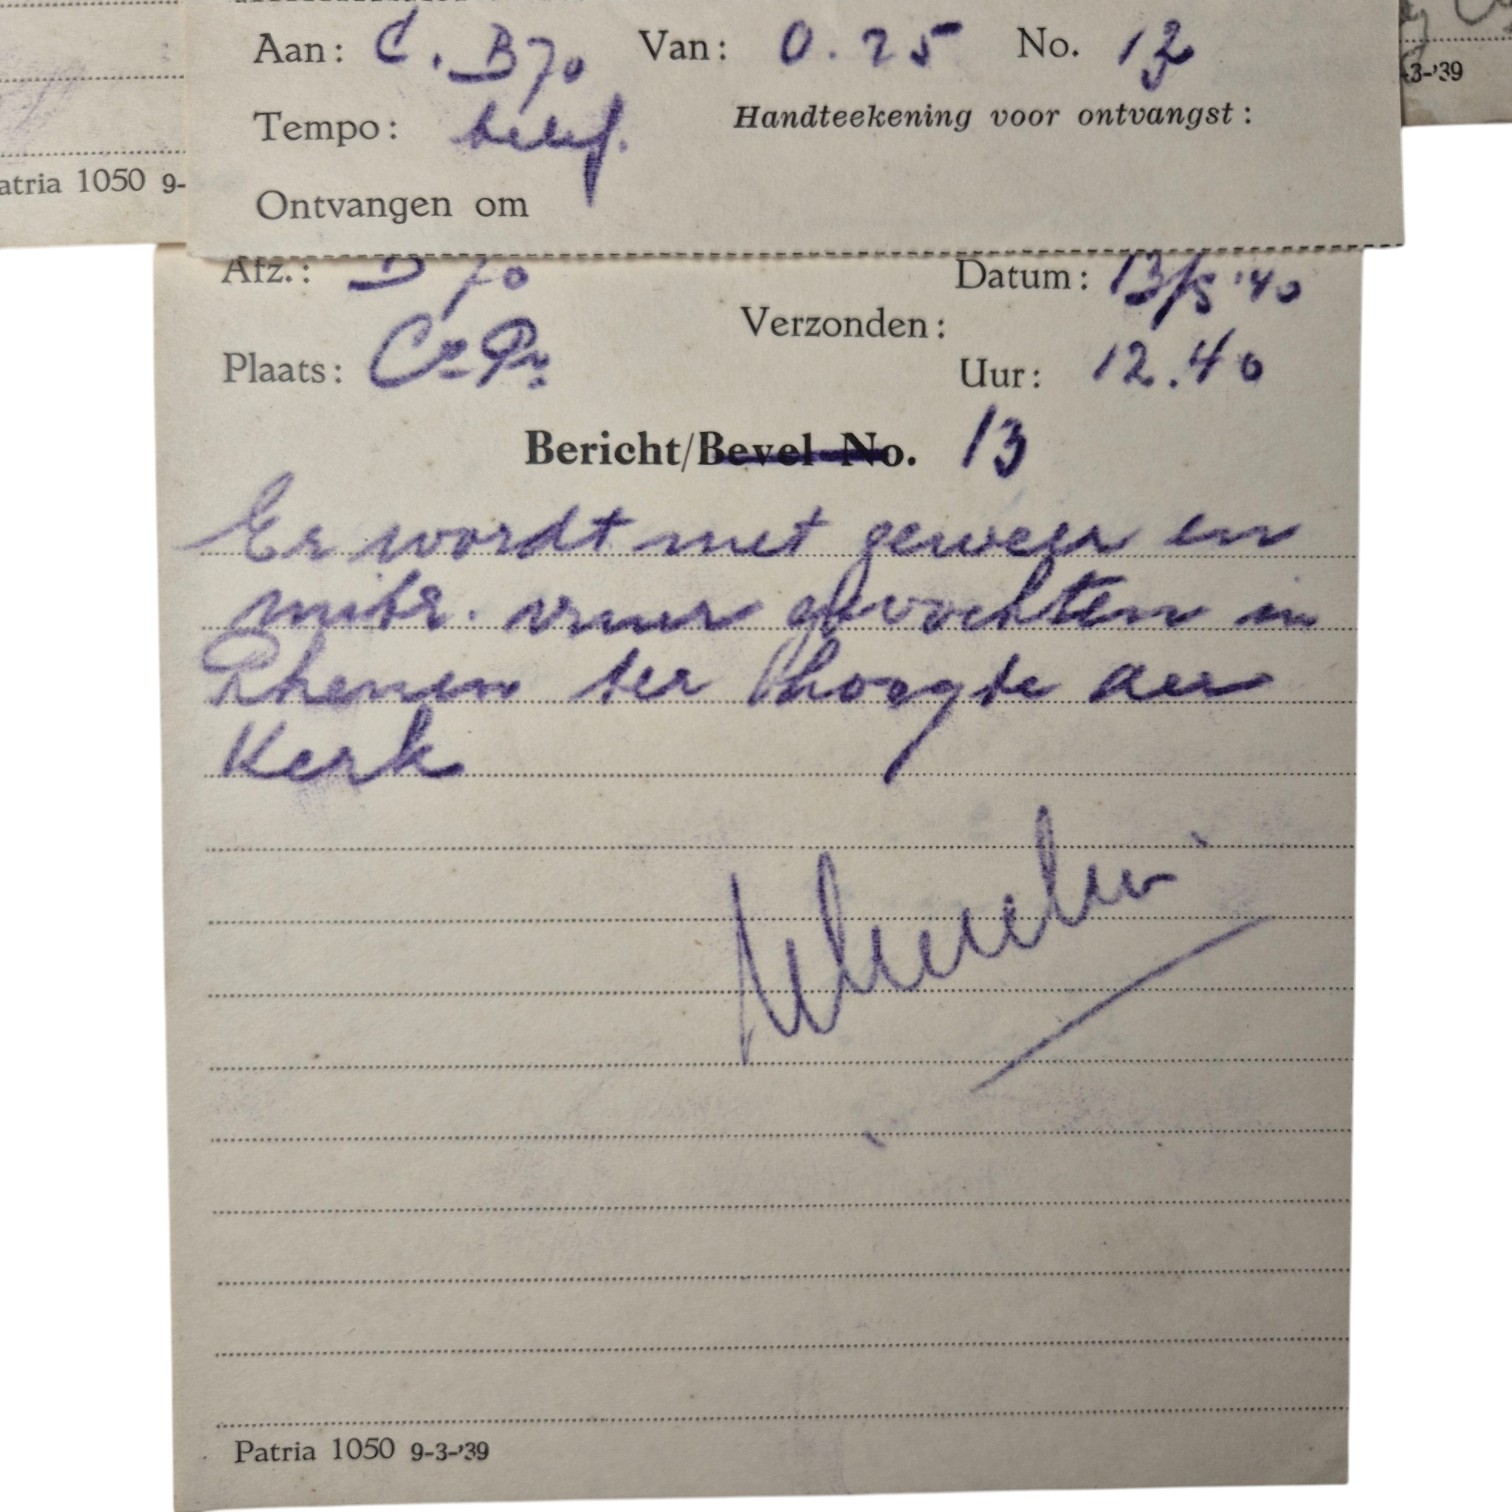 Aan: C. B70 Van: O. 25 No. 13
Tempo: telef. Handteekening voor ontvangst:
Ontvangen om
atria 1050 9-
3-'39
Afz.: B 70 Datum: 13/5 '40
Verzonden:
Plaats: Co Po Uur: 12.40
Bericht/Bevel No. 13
Er wordt met geweer en
mitr. vuur gevochten in
Rhenen ter hoogte der
Kerk
Patria 1050 9-3-'39